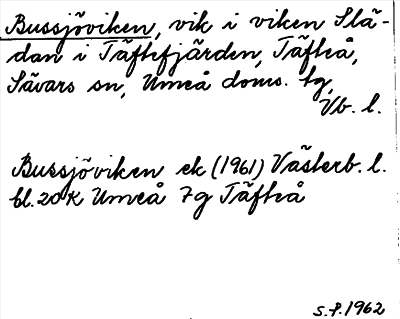 Bussjöviken, vik i viken Slä-
dan i Täftefjärden, Täfteå,
Sävars sn, Umeå doms. tg,
Vb. l.
Bussjöviken ek (1961) Västerb. l.
bl. 20K Umeå 7g Täfteå
S.P. 1962